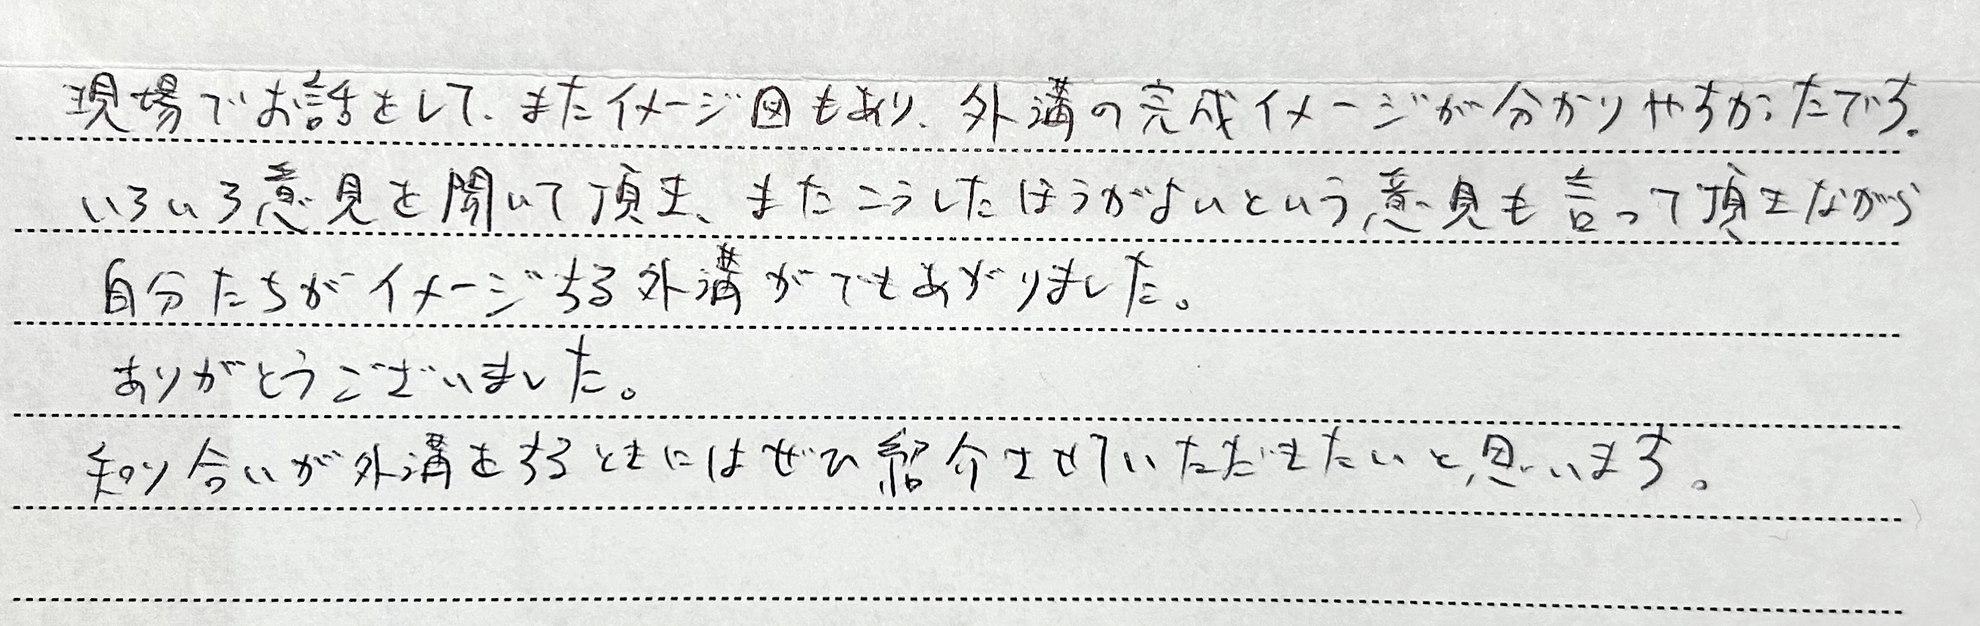 現場でお話をして、またイメージ図もあり、外溝の完成イメージが分かりやすかったです。
いろいろ意見を聞いて頂き、またこうしたほうがよいという意見も言って頂きながら
自分たちがイメージする外溝ができあがりました。
ありがとうございました。
知り合いが外溝をするときにはぜひ紹介させていただきたいと思います。